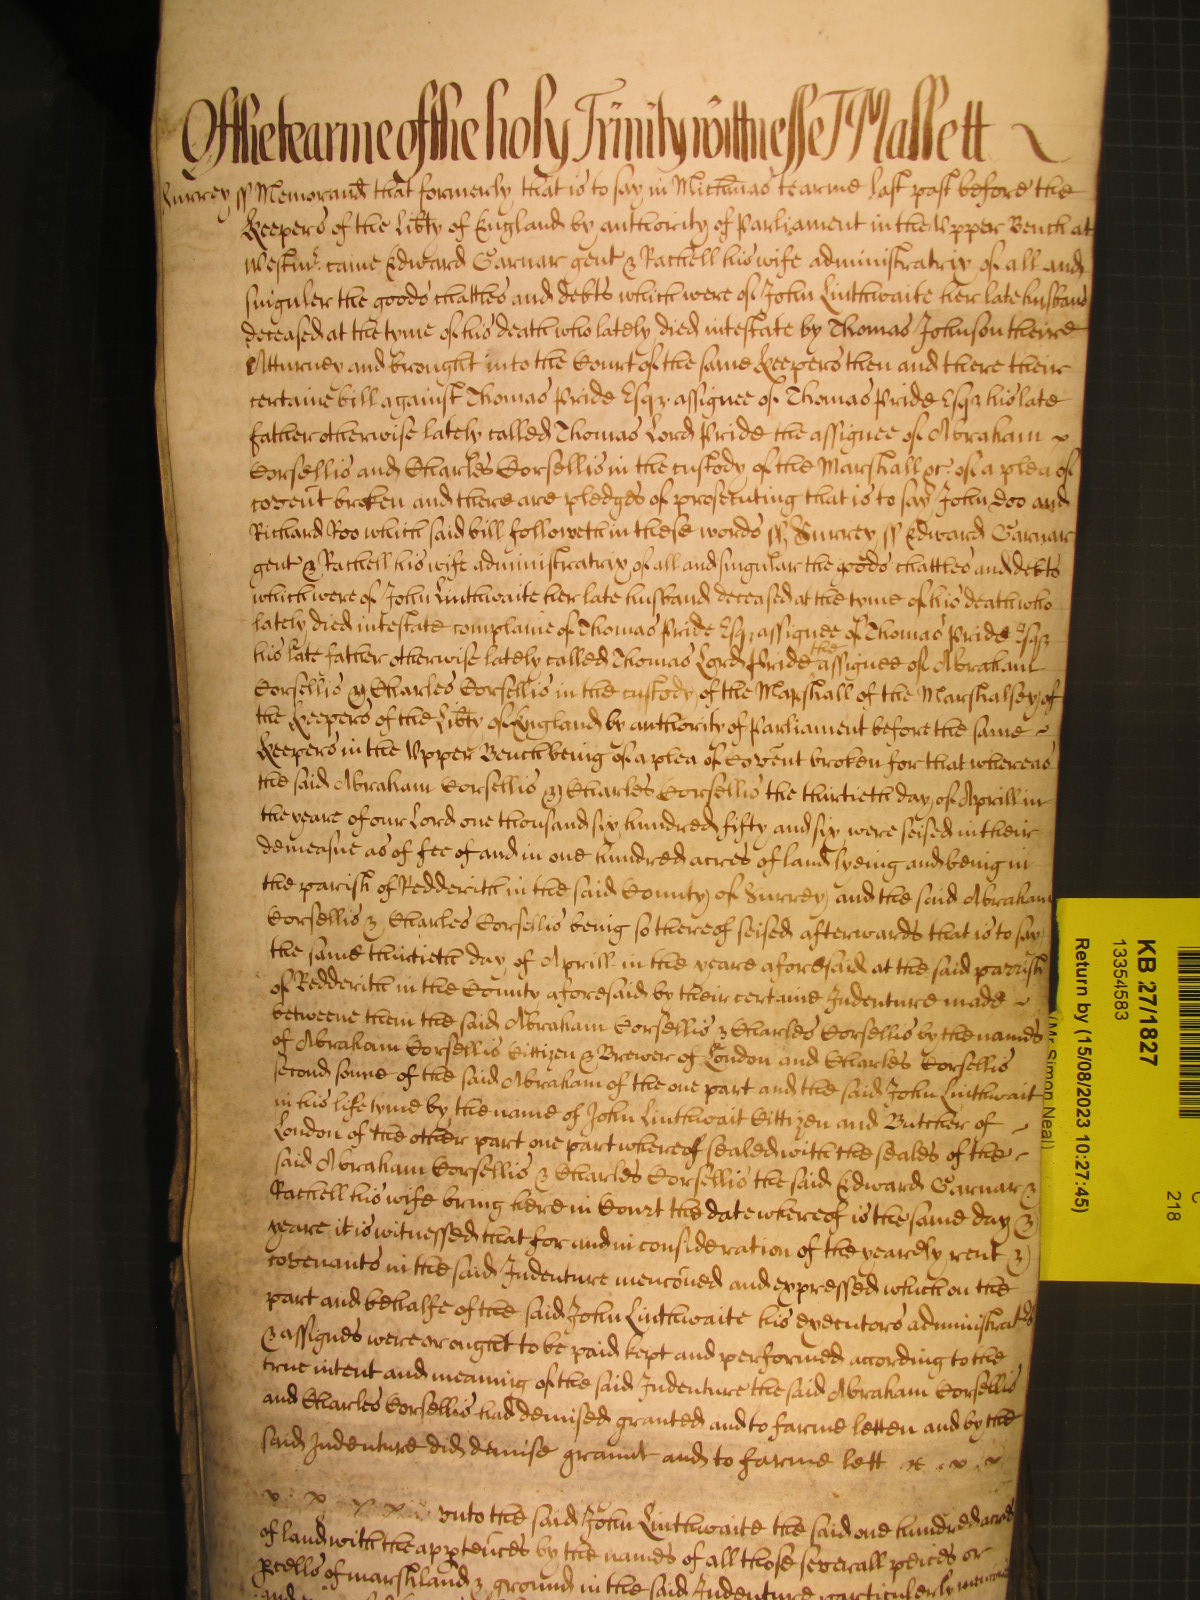 Of the tearme of the holy Trinity wittnesse T Mallett
Surrey ss Memorand that formerly that is to say in Michmas tearme last past before the
Keepers of the Libty of England by authority of Parliament in the Upper Bench at
Westmr. came Edward Garnar gent & Rachell his wife administratrix of all and
singuler the goods chattles and debts which were of John Linthwaite her late husband
deceased at the tyme of his death who lately died intestate by Thomas Johnson theire
Atturney and brought into the Court of the same Keepers then and there their
certaine bill against Thomas Pride Esqr. assignee of Thomas Pride Esqr his late
father otherwise lately called Thomas Lord Pride the assignee of Abraham
Corsellis and Charles Corsellis in the custody of the Marshall &c: of a plea of
covent broken and there are pledges of prosecuting that is to say John Doo and
Richard Roo which said bill followeth in these words ss Surrey ss Edward Garnar
gent & Rachell his wife administratrix of all and singular the goods chattles and debts
which were of John Linthwaite her late husband deceased at the tyme of his death who
lately died intestate complaine of Thomas Pride Esqr assignee of Thomas Pride Esqr
his late father otherwise lately called Thomas Lord Pride the assignee of Abraham
Corsellis & Charles Corsellis in the custody of the Marshall of the Marshalsey of
the Keepers of the Libty of England by authority of Parliament before the same
Keepers in the Upper Bench being of a plea of Covent broken for that whereas
the said Abraham Corsellis & Charles Corsellis the thirtieth day of Aprill in
the yeare of our Lord one thousand six hundred fifty and six were seised in their
demeasne as of fee of and in one hundred acres of land lyeing and being in
the parish of Redderith in the said County of Surrey and the said Abraham
Corsellis & Charles Corsellis being so thereof seised afterwards that is to say
the same thirtieth day of Aprill in the yeare aforesaid at the said parrish
of Redderith in the County aforesaid by their certaine Indenture made
betweene them the said Abraham Corsellis & Charles Corsellis by the names
of Abraham Corsellis Cittizen & Brewer of London and Charles Corsellis
second sonne of the said Abraham of the one part and the said John Linthwait
in his life tyme by the name of John Linthwait Cittizen and Butcher of
London of the other part one part whereof sealed with the seales of the
said Abraham Corsellis & Charles Corsellis the said Edward Garnar &
Rachell his wife bring here in Court the date whereof is the same day &
yeare it is witnessed that for and in consideration of the yearely rent &
covenants in the said Indenture menconed and expressed which on the
part and behalfe of the said John Linthwaite his executors administrators
& assignes were or ought to be paid kept and performed according to the
true intent and meaning of the said Indenture the said Abraham Corsellis
and Charles Corsellis had demised granted and to farme letten and by the
said Indenture did demise graunt and to farme lett
unto the said John Linthwaite the said one hundred acres
of land with the apptences by the names of all those severall peices or
pcells of marshland & ground in the said Indenture particulerly
KB 27/1827
13354583
Return by (15/08/2023 10:27:45)
(Mr Simon Neal)
218